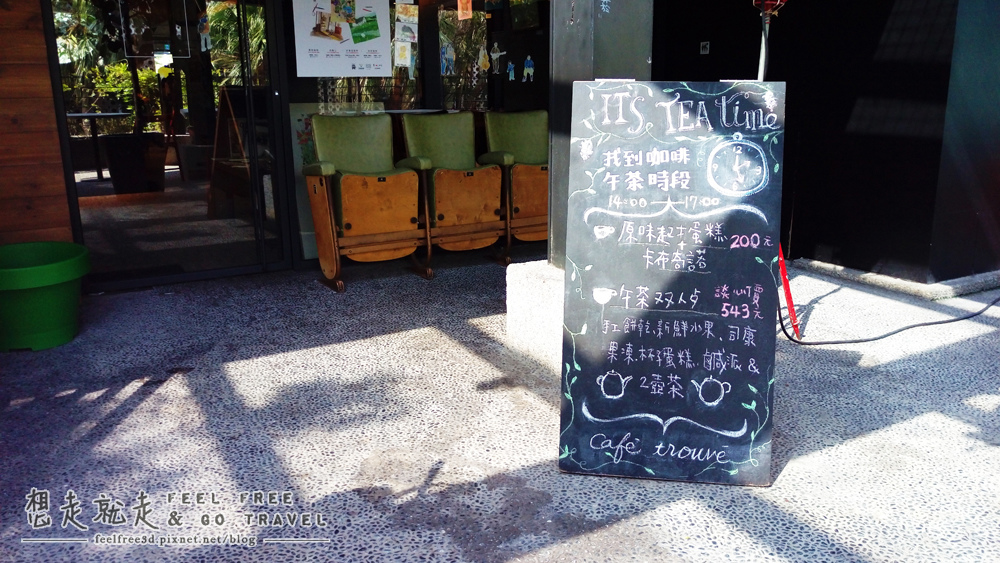 IT'S TEA time
12
找到咖啡
午茶時段
14:00 → 17:00
原味起士蛋糕
+
卡布奇諾
200元
午茶双人点
談心價
543元
手工餅乾、新鮮水果、司康
果凍、杯子蛋糕、鹹派 &
2壺茶
café trouvé
想走就走
FEEL FREE
& GO TRAVEL
feelfree3d.pixnet.net/blog